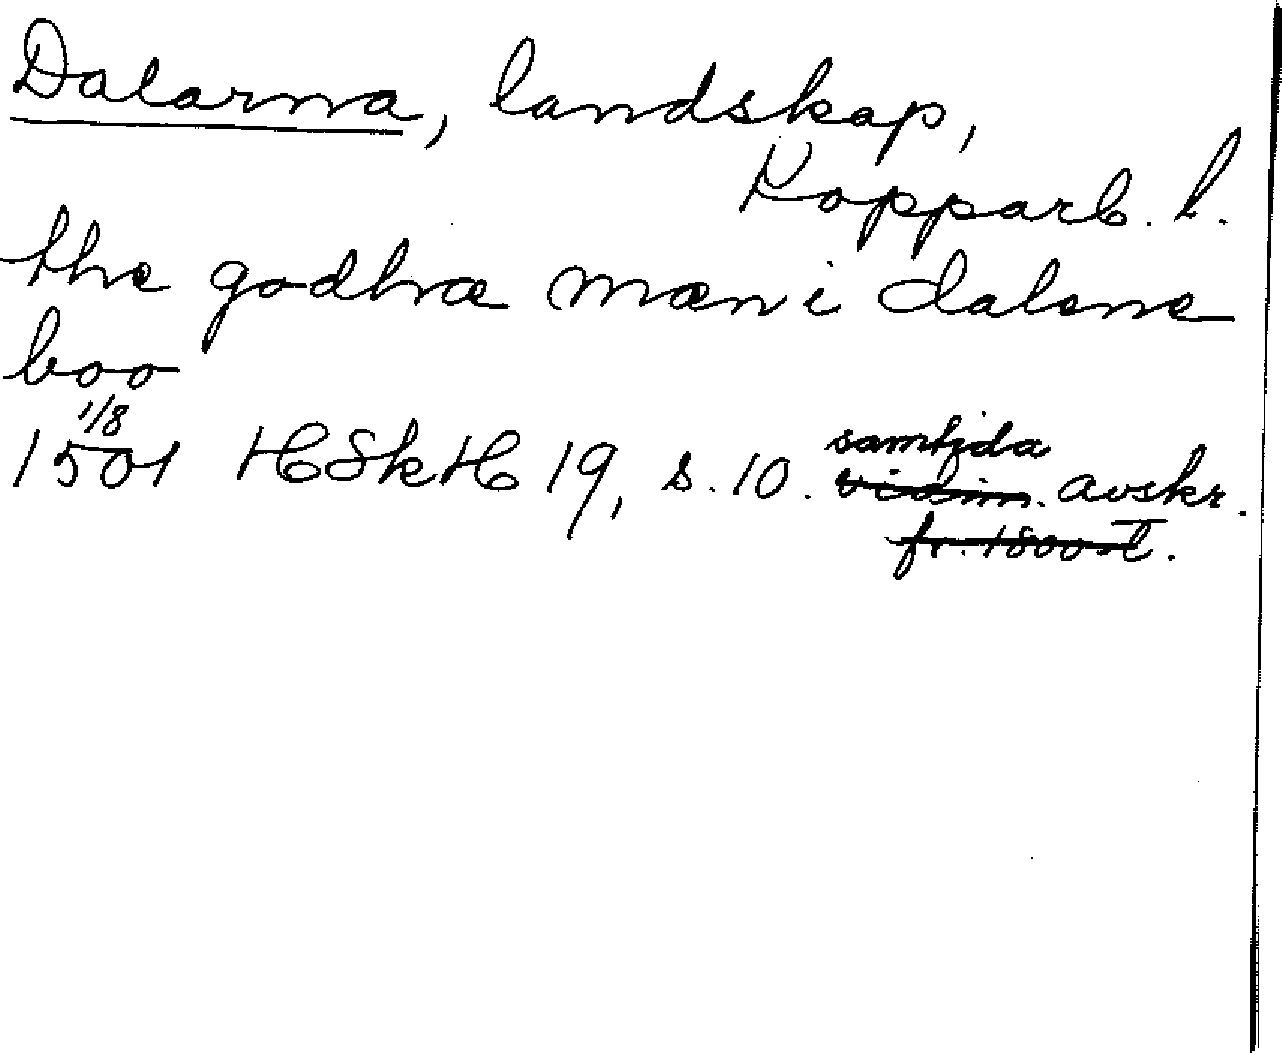 Dalarna, landskap,
Kopparb. l.
the godhræ mæn i dalene
boo
1/8
1501 HSkH 19, s. 10. vidim. avskr.
samtida
fr. 1800-t.